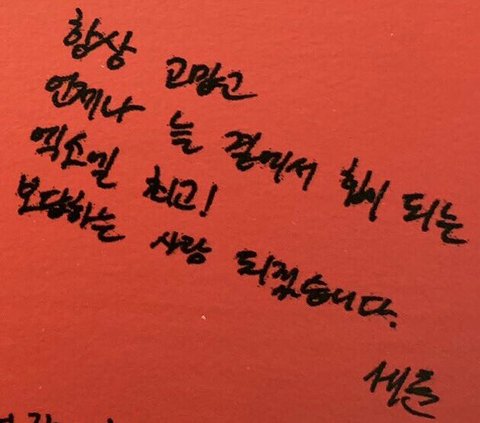 항상 고맙고
언제나 늘 곁에서 힘이 되는
엑소엘 최고!
보답하는 사람 되겠습니다.
세훈